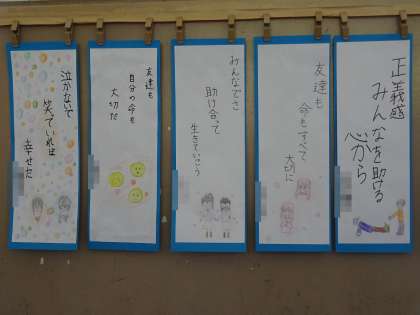 正義感
みんなを助ける
心から
友達も
命もすべて
大切に
みんなでさ
助け合って
生きていこう
友達も
自分の命も
大切だ
泣かないで
笑っていれば
幸せだ